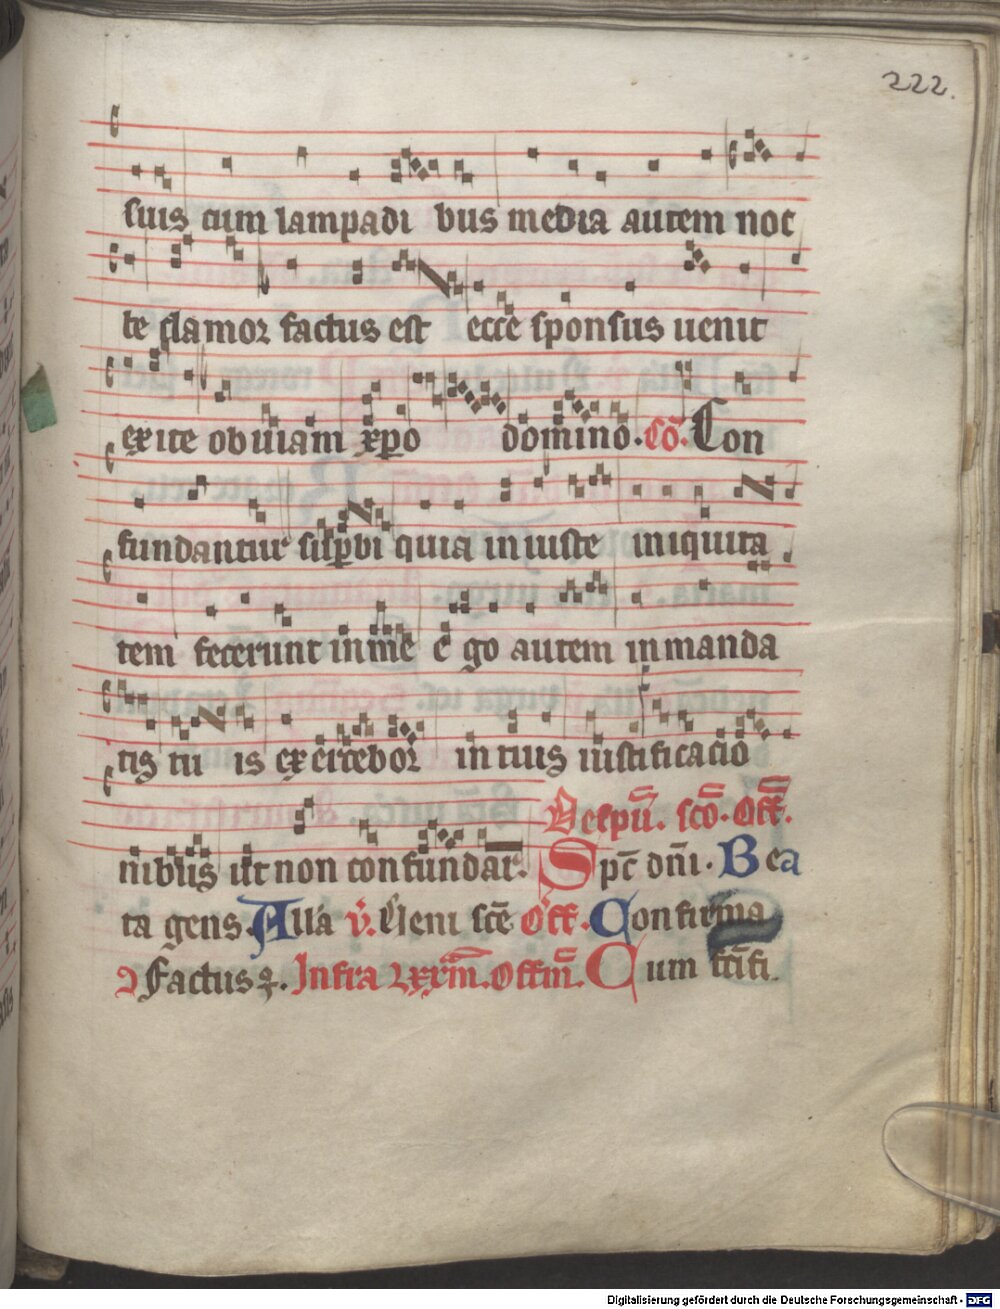 222.
suis cum lampadi bus media autem noc
te clamor factus est ecce sponsus uenit
exite obuiam xpo domino. Cō. Con
fundantur supbi quia iniuste iniquita
tem fecerunt in me e go autem in manda
tis tu is exercebor in tuis iustificacio
nibus ut non confundar.
scō. Off.
Spc dn̄i. Bea
ta gens. Alla v̄. Ueni scē Off. Confirma
Factus Infra Offm̄. Cum scīfi
Digitalisierung gefördert durch die Deutsche Forschungsgemeinschaft - DFG